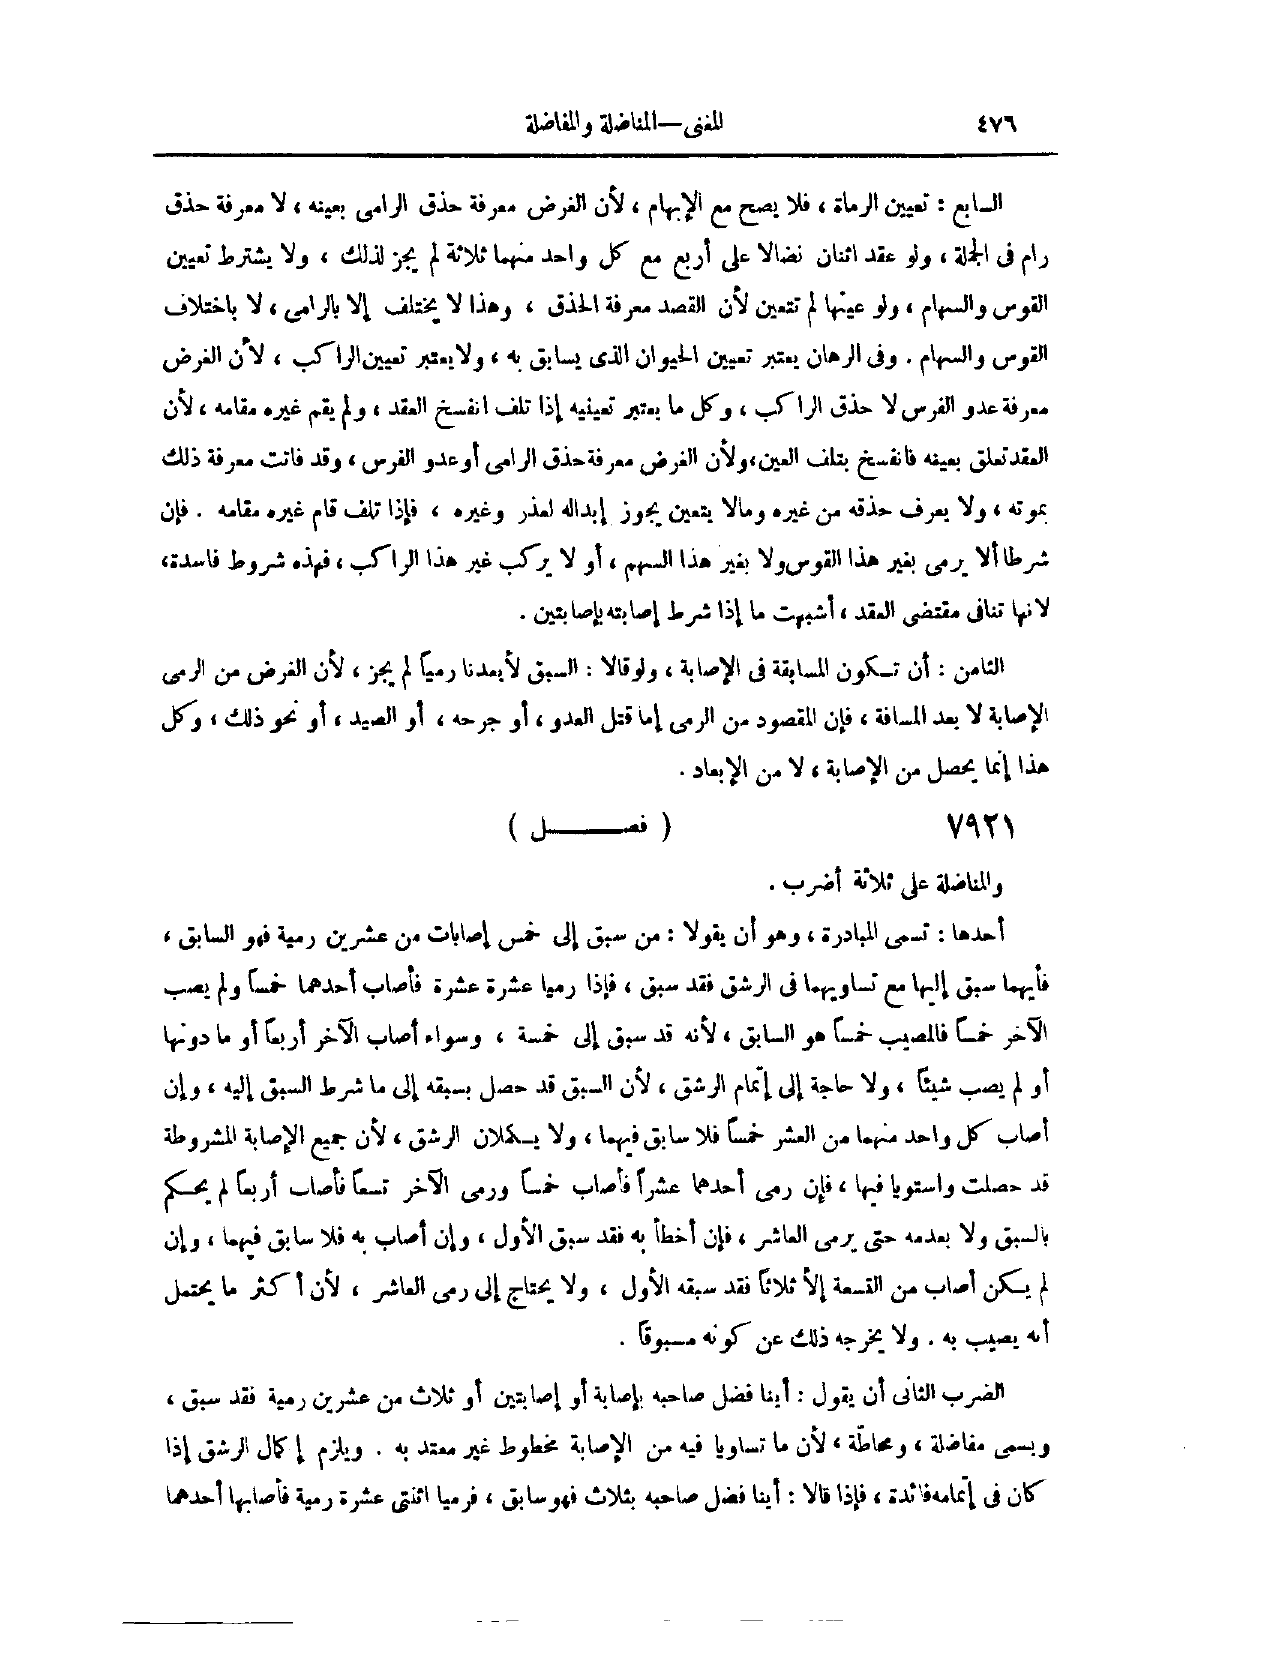 ٤٧٦
المغنى—المناضلة والمفاضلة
السابع : تعيين الرماة ، فلا يصح مع الإبهام ، لأن الغرض معرفة حذق الرامى بعينه ، لا معرفة حذق
رام فى الجملة ، ولو عقد اثنان نضالا على أربع مع كل واحد منهما ثلاثة لم يجز لذلك ، ولا يشترط تعيين
القوس والسهام ، ولو عينها لم تتعين لأن القصد معرفة الحذق ، وهذا لا يختلف إلا بالرامى ، لا باختلاف
القوس والسهام . وفى الرهان يعتبر تعيين الحيوان الذى يسابق به ، ولا يعتبر تعيين الراكب ، لأن الغرض
معرفة عدو الفرس لا حذق الراكب ، وكل ما يعتبر تعيينه إذا تلف انفسخ العقد ، ولم يقم غيره مقامه ، لأن
العقد تعلق بعينه فانفسخ بتلف العين ، ولأن الغرض معرفة حذق الرامى أو عدو الفرس ، وقد فاتت معرفة ذلك
بموته ، ولا يعرف حذقه من غيره ومالا يتعين يجوز إبداله لعذر وغيره ، فإذا تلف قام غيره مقامه . فإن
شرطا ألا يرمى بغير هذا القوس ولا بغير هذا السهم ، أو لا يركب غير هذا الراكب ، فهذه شروط فاسدة ،
لانها تنافى مقتضى العقد ، أشبهت ما إذا شرط إصابته بإصابتين .
الثامن : أن تكون المسابقة فى الإصابة ، ولو قالا : السبق لأبعدنا رمياً لم يجز ، لأن الغرض من الرمى
الإصابة لا بعد المسافة ، فإن المقصود من الرمى إما قتل العدو ، أو جرحه ، أو الصيد ، أو نحو ذلك ، وكل
هذا إنما يحصل من الإصابة ، لا من الإبعاد .
٧٩٢١ ( فصــــــل )
والمناضلة على ثلاثة أضرب .
أحدها : تسمى المبادرة ، وهو أن يقولا : من سبق إلى خمس إصابات من عشرين رمية فهو السابق ،
فأيهما سبق إليها مع تساويهما فى الرشق فقد سبق ، فإذا رميا عشرة عشرة فأصاب أحدهما خمساً ولم يصب
الآخر خمساً فالمصيب خمساً هو السابق ، لأنه قد سبق إلى خمسة ، وسواء أصاب الآخر أربعاً أو ما دونها
أو لم يصب شيئاً ، ولا حاجة إلى إتمام الرشق ، لأن السبق قد حصل بسبقه إلى ما شرط السبق إليه ، وإن
أصاب كل واحد منهما من العشر خمساً فلا سابق فيهما ، ولا يكملان الرشق ، لأن جميع الإصابة المشروطة
قد حصلت واستويا فيها ، فإن رمى أحدهما عشراً فأصاب خمساً ورمى الآخر تسعاً فأصاب أربعاً لم يحكم
بالسبق ولا بعدمه حتى يرمى العاشر ، فإن أخطأ به فقد سبق الأول ، وإن أصاب به فلا سابق فيهما ، وإن
لم يكن أصاب من التسعة إلا ثلاثاً فقد سبقه الأول ، ولا يحتاج إلى رمى العاشر ، لأن أكثر ما يحتمل
أنه يصيب به . ولا يخرجه ذلك عن كونه مسبوقاً .
الضرب الثانى أن يقول : أينا فضل صاحبه بإصابة أو إصابتين أو ثلاث من عشرين رمية فقد سبق ،
ويسمى مفاضلة ، ومحاطّة ، لأن ما تساويا فيه من الإصابة محطوط غير معتد به . ويلزم إكمال الرشق إذا
كان فى إتمامه فائدة ، فإذا قالا : أينا فضل صاحبه بثلاث فهو سابق ، فرميا اثنتى عشرة رمية فأصابها أحدهما